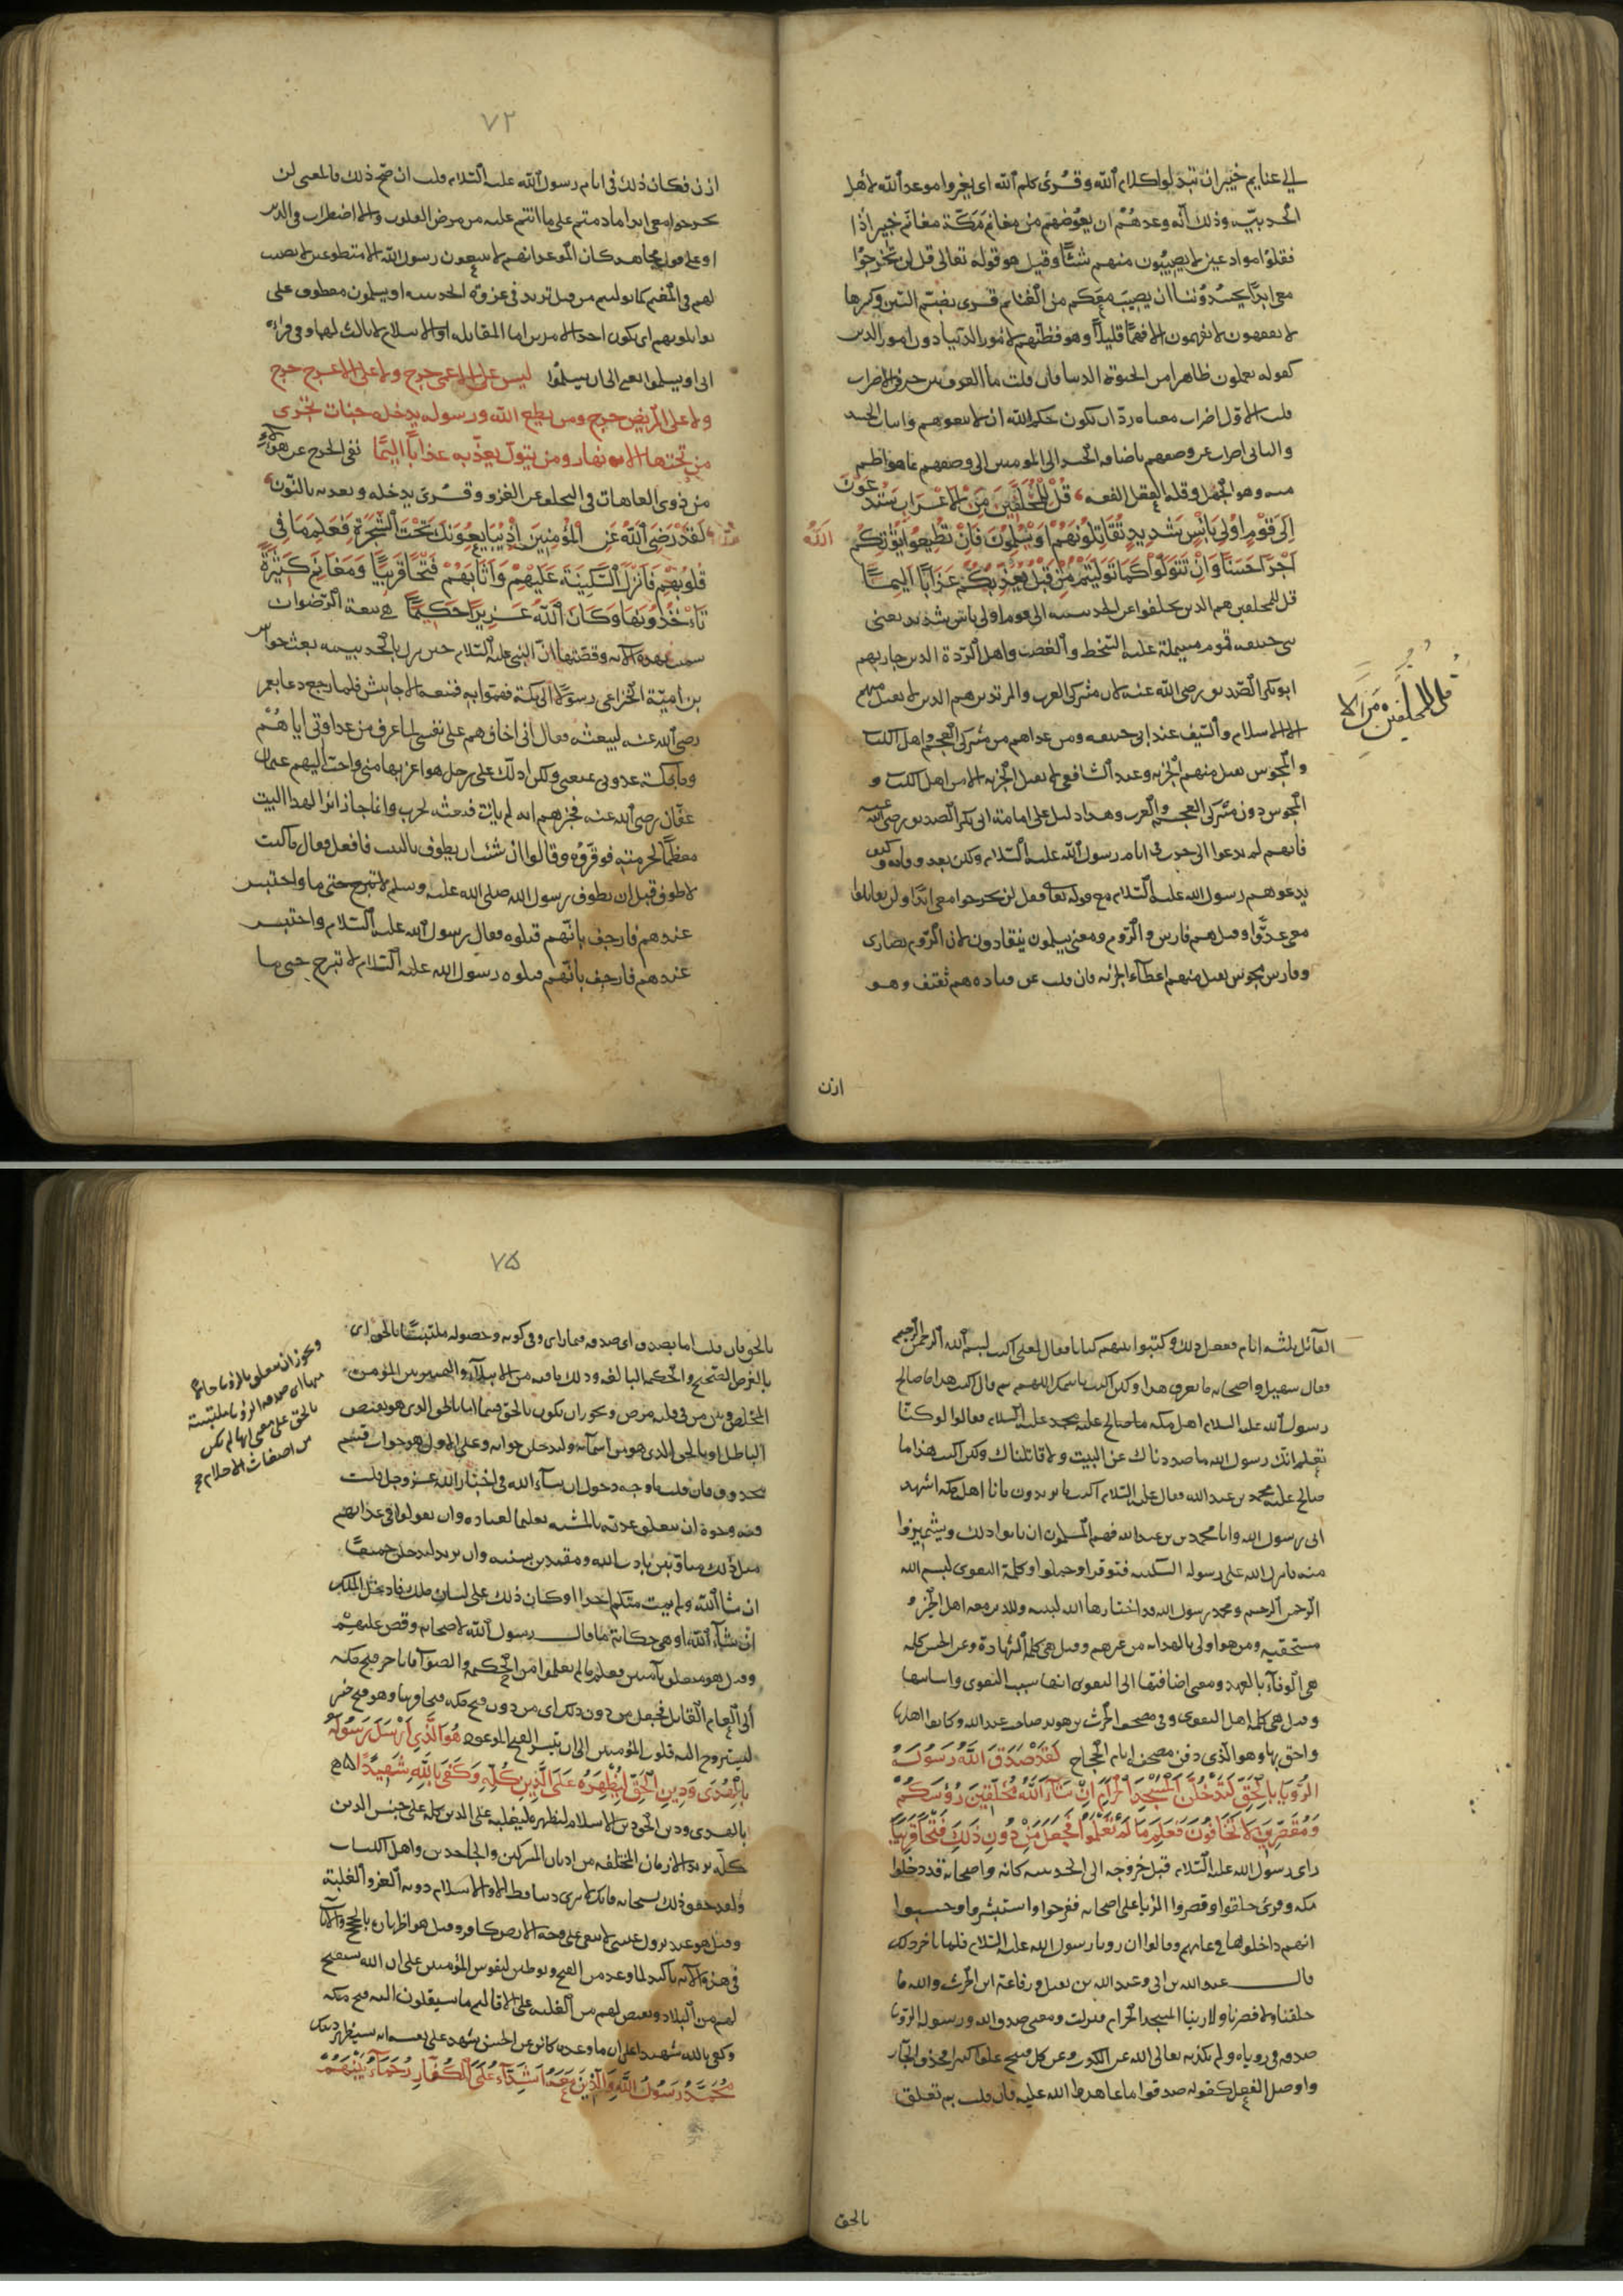 الى غنايم خيبر ان تبدلوا كلام الله وقرئ كلم الله اى يغيروا موعد الله لاهل
الحديبية وذلك انه وعدهم ان يعوضهم من مغانم مكة مغانم خيبر اذا
قفلوا موادعين لا يصيبون منهم شئا وقيل هو قوله تعالى قل لن تخرجوا
معى ابدا يحسدوننا ان يصيب معكم من الغنايم قرى بضم السين وكسرها
لا يفقهون لا يفهمون الا فهما قليلا وهو فطنتهم لامور الدنيا دون امور الدين
كقوله يعلمون ظاهرا من الحيوة الدنيا فان قلت ما الفرق بين حرفى الاضراب
قلت الاول اضراب معناه رد ان يكون حكم الله ان لا يتبعوهم واثبات الحسد
والثانى اضراب عن وصفهم باضافة الحسد الى المومنين الى وصفهم بما هو اطم
منه وهو الجهل وقلة الفقه قُلْ لِلْمُخَلَّفِينَ مِنَ الْاَعْرَابِ سَتُدْعَوْنَ
اِلَى قَوْمٍ اُولِى بَاْسٍ شَدِيدٍ تُقَاتِلُونَهُمْ اَوْ يُسْلِمُونَ فَاِنْ تُطِيعُوا يُؤْتِكُمُ الله
اَجْرًا حَسَنًا وَاِنْ تَتَوَلَّوْا كَمَا تَوَلَّيْتُمْ مِنْ قَبْلُ يُعَذِّبْكُمْ عَذَابًا اَلِيمًا
قل للمخلفين هم الذين تخلفوا عن الحديبية الى قوم اولى باس شديد يعنى
بنى حنيفة قوم مسيلمة عليه السخط والغضب واهل الردة الذين حاربهم
ابو بكر الصديق رضى الله عنه لان مشركى العرب والمرتدين هم الذين لا يقبل منهم
الا الاسلام والسيف عند ابى حنيفة ومن عداهم من مشركى العجم واهل الكتاب
والمجوس تقبل منهم الجزية وعند الشافعى لا تقبل الجزية الا من اهل الكتاب و
المجوس دون مشركى العجم والعرب وهذا دليل على امامة ابى بكر الصديق رضى الله عنه
فانهم لم يدعوا الى حرب فى ايام رسول الله عليه السلام ولكن بعد وفاته وكيف
يدعوهم رسول الله عليه السلام مع قوله تعالى فقل لن تخرجوا معى ابدا ولن تقاتلوا
معى عدوا وقيل هم فارس والروم ومعنى يسلمون ينقادون لان الروم نصارى
وفارس مجوس يقبل منهم اعطاء الجزية فان قلت عن قتادة هم ثقيف وهو
قل للمخلفين من الا
اذن
٧٢
اذن فكان ذلك فى ايام رسول الله عليه السلام قلت ان صح ذلك فالمعنى لن
تخرجوا معى ابدا ما دمتم على ما انتم عليه من مرض القلوب والاضطراب فى الدين
او على قول مجاهد كان الموعد انهم لا يتبعون رسول الله الا متطوعين لا نصيب
لهم فى المغنم كما توليتم من قبل تريد فى غزوة الحديبية او يسلمون معطوف على
تقاتلونهم اى يكون احد الامرين اما المقاتلة او الاسلام لا ثالث لهما وفى قراءة
ابى او يسلموا بمعنى الى ان يسلموا ليس على الاعمى حرج ولا على الاعرج حرج
ولا على المريض حرج ومن يطع الله ورسوله يدخله جنات تجرى
من تحتها الانهار ومن يتول يعذبه عذابا اليما نفى الحرج عن هؤلاء
من ذوى العاهات فى التخلف عن الغزو وقرئ يدخله ويعذبه بالنون
لَقَدْ رَضِىَ اللهُ عَنِ الْمُؤْمِنِينَ اِذْ يُبَايِعُونَكَ تَحْتَ الشَّجَرَةِ فَعَلِمَ مَا فِى
قُلُوبِهِمْ فَاَنْزَلَ السَّكِينَةَ عَلَيْهِمْ وَاَثَابَهُمْ فَتْحًا قَرِيبًا وَمَغَانِمَ كَثِيرَةً
يَأْخُذُونَهَا وَكَانَ اللهُ عَزِيزًا حَكِيمًا هى بيعة الرضوان
سميت بهذه الاية وقصتها ان النبى عليه السلام حين نزل بالحديبية بعث جواس
بن امية الخزاعى رسولا الى مكة فهموا به فمنعه الاحابيش فلما رجع دعا بعمر
رضى الله عنه ليبعثه فقال انى اخافهم على نفسى لما عرف من عداوتى اياهم
وما بمكة عدوى يمنعنى ولكن ادلك على رجل هو اعز بها منى واحب اليهم عثمان
عفان رضى الله عنه فخبرهم انه لم يات فبعثه لحرب وانما جا زائرا لهذا البيت
معظما لحرمته فوقروه وقالوا ان شئت ان تطوف بالبيت فافعل فقال ما كنت
لاطوف قبل ان يطوف رسول الله صلى الله عليه وسلم لا تبرح حتى ما واحتبس
عندهم فارجف بانهم قتلوه فقال رسول الله عليه السلام واحتبس
عندهم فارجف بانهم قتلوه رسول الله عليه السلام لا تبرح حتى ما
القابل ثلثة ايام ففعل ذلك وكتبوا بينهم كتابا فقال لعلى اكتب بسم الله الرحمن الرحيم
فقال سهيل واصحابه ما نعرف هذا ولكن اكتب باسمك اللهم ثم قال اكتب هذا ما صالح
رسول الله عليه السلام اهل مكة ما صالح عليه محمد عليه السلام فقالوا لو كنا
نعلم انك رسول الله ما صددناك عن البيت ولا قاتلناك ولكن اكتب هذا ما
صالح عليه محمد بن عبد الله فقال عليه السلام اكتب ما يريدون فانا اهل مكة اشهد
انى رسول الله وانا محمد بن عبد الله فهم المسلمون ان يابوا ذلك ويشمئزوا
منه فانزل الله على رسوله السكينة فتوقروا وحملوا وكلمة التقوى بسم الله
الرحمن الرحيم ومحمد رسول الله قد اختارها الله لنبيه وللذين معه اهل الخير و
مستحقيه ومن هو اولى بالهداية من غيرهم وقيل هى كلمة الشهادة وعن الحسن كلمة
هى الوفاء بالعهد ومعنى اضافتها الى التقوى انها سبب التقوى واساسها
وقيل هى كلمة اهل التقوى وفى مصحف الحرث بن سويد صاحب عبد الله وكانوا اهلها
واحق بها وهو الذى دفن مصحفه ايام الحجاج لَقَدْ صَدَقَ اللهُ رَسُولَهُ
الرُّؤْيَا بِالْحَقِّ لَتَدْخُلُنَّ الْمَسْجِدَ الْحَرَامَ اِنْ شَاءَ اللهُ مُحَلِّقِينَ رُؤُسَكُمْ
وَمُقَصِّرِينَ لَا تَخَافُونَ فَعَلِمَ مَا لَمْ تَعْلَمُوا فَجَعَلَ مِنْ دُونِ ذَلِكَ فَتْحًا قَرِيبًا
راى رسول الله عليه السلام قبل خروجه الى الحديبية كانه واصحابه قد دخلوا
مكة وقرئ حلقوا وقصروا الرؤيا على اصحابه ففرحوا واستبشروا وحسبوا
انهم داخلوها فى عامهم وقالوا ان رويا رسول الله عليه السلام فلما تاخر ذلك
قال عبد الله بن ابى وعبد الله بن نفيل ورفاعة ابن الحرث والله ما
حلقنا ولا قصرنا ولا راينا المسجد الحرام فنزلت ومعنى صدق الله ورسوله الرويا
صدقه فى روياه ولم يكذبه تعالى الله عن الكذب وعن كل قبيح علوا كبيرا فحذف الجار
واوصل الفعل كقوله صدقوا ما عاهدوا الله عليه فان قلت بم تعلق
بالحق
٧٥
بالحق فان قلت اما بصدق اى صدقه فيما راى وفى كونه وحصوله ملتبسا بالحق اى
بالغرض الصحيح والحكمة البالغة وذلك ما فيه من الابتلاء والتمييز بين المؤمن
المخلص وبين من فى قلبه مرض ويجوز ان يكون بالحق قسما اما بالحق الذى هو نقيض
الباطل او بالحق الذى هو من اسمائه ولتدخلن جوابه وعلى الاول هو جواب قسم
محذوف فان قلت ما وجه دخول ان شاء الله فى اخبار الله عز وجل قلت
فيه وجوه ان يعلق عدته بالمشية تعليما لعباده وان يقولوا فى عداتهم
مثل ذلك متادبين بادب الله ومقتدين بسنته وان يريد لتدخلن جميعا
ان شا الله ولم يمت منكم احدا او كان ذلك على لسان ملك فادخل الملك
ان شاء الله او هى حكاية ما قال رسول الله لاصحابه وقص عليهم
وقيل هو متعلق بآمنين فعلم ما لم تعلموا من الحكمة والصواب فى تاخير فتح مكة
الى العام القابل فجعل من دون ذلك اى من دون فتح مكة فتحا قريبا وهو فتح خيبر
ليستروح اليه قلوب المؤمنين الى ان يتيسر الفتح الموعود هُوَ الَّذِى اَرْسَلَ رَسُولَهُ
بِالْهُدَى وَدِينِ الْحَقِّ لِيُظْهِرَهُ عَلَى الدِّينِ كُلِّهِ وَكَفَى بِاللهِ شَهِيدًا
بالهدى ودين الحق دين الاسلام ليظهره ليغلبه على الدين كله على جنس الدين
كله يريد الاديان المختلفة من اديان المشركين والجاحدين واهل الكتاب
ولقد حقق ذلك سبحانه فانك لا ترى دينا قط الا والاسلام دونه العز والغلبة
وقيل هو عند نزول عيسى لا يبقى على وجه الارض كافر وقيل هو اظهاره بالحجج والآيات
فى هذه الآية تاكيد لما وعد من الفتح وتوطين لنفوس المؤمنين على ان الله سيفتح
لهم من البلاد ويقيض لهم من الغلبة على الاقاليم ما يستقلون اليه فتح مكة
وكفى بالله شهيدا على ان ما وعده كائن عن الحسن شهد على نفسه انه سيظهر دينك
مُحَمَّدٌ رَسُولُ اللهِ وَالَّذِينَ مَعَهُ اَشِدَّاءُ عَلَى الْكُفَّارِ رُحَمَاءُ بَيْنَهُمْ
ويجوز ان يتعلق بالرؤيا حالا
منها اى صدقه الرؤيا ملتبسة
بالحق على معنى انها لم تكن
من اضغاث الاحلام